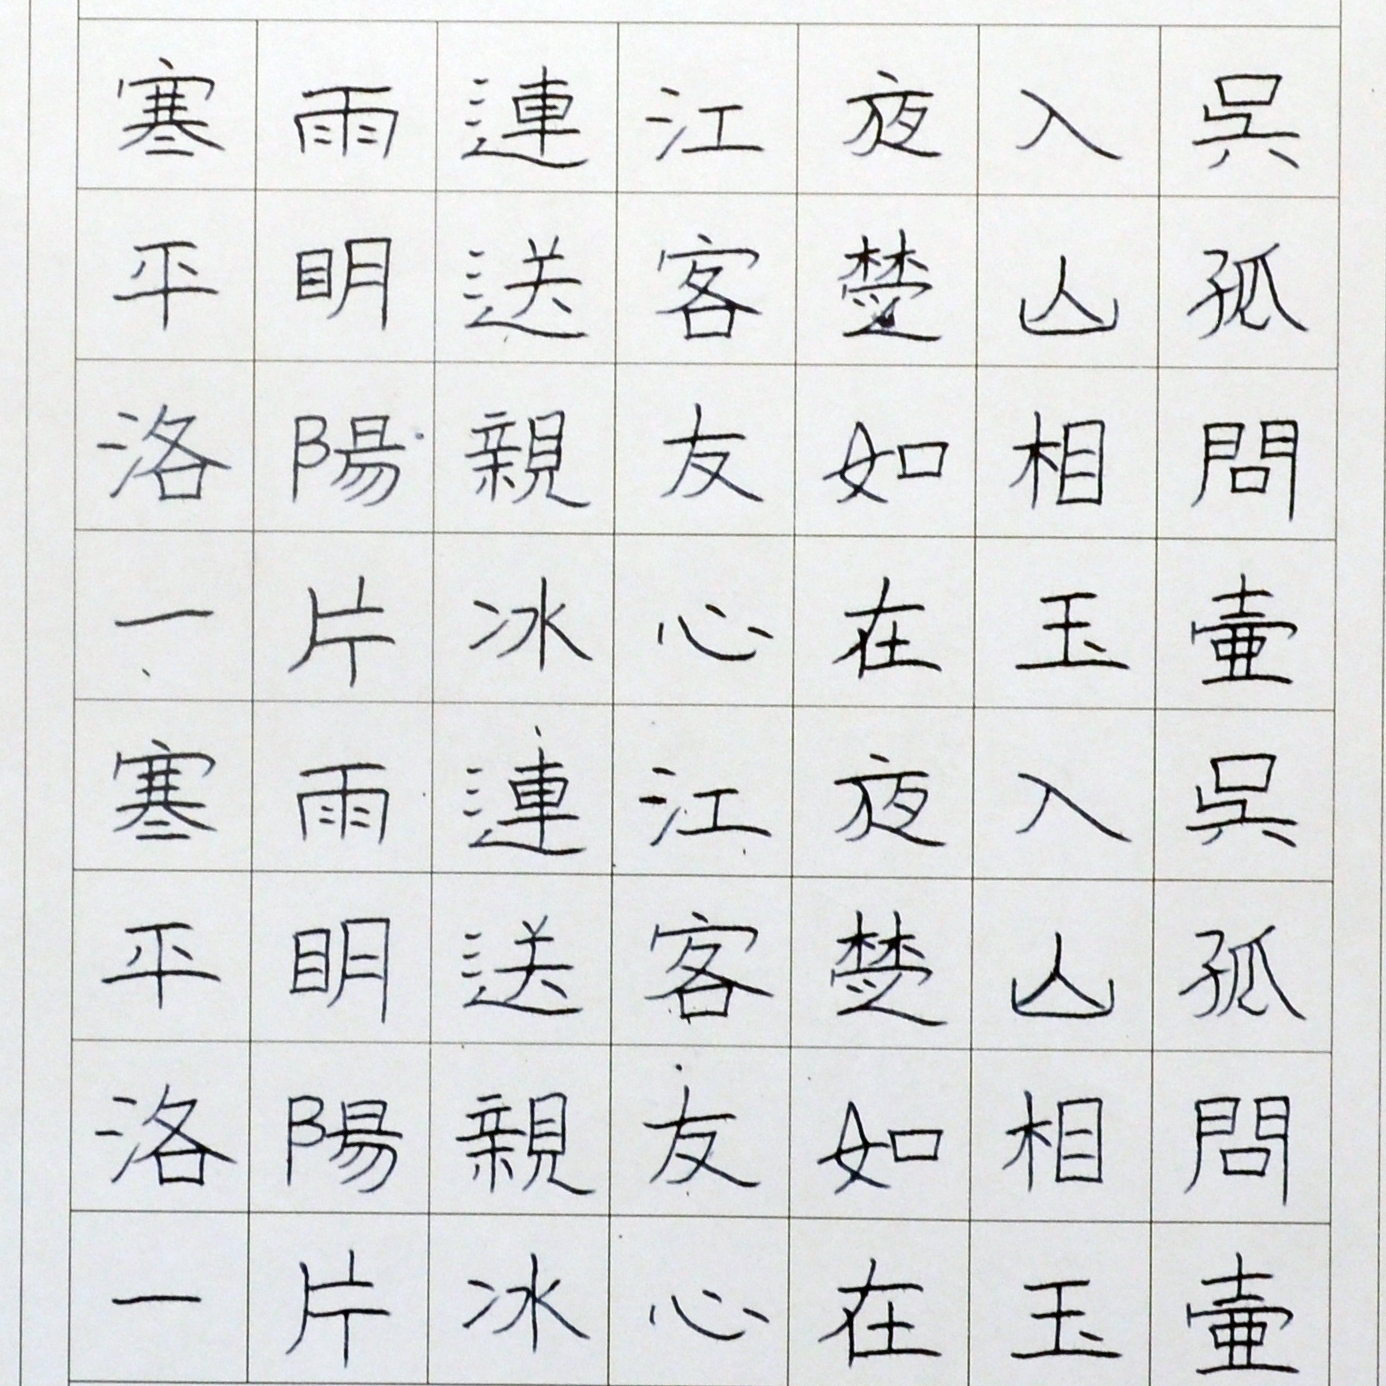 寒雨連江夜入吳
平明送客楚山孤
洛陽親友如相問
一片冰心在玉壺
寒雨連江夜入吳
平明送客楚山孤
洛陽親友如相問
一片冰心在玉壺